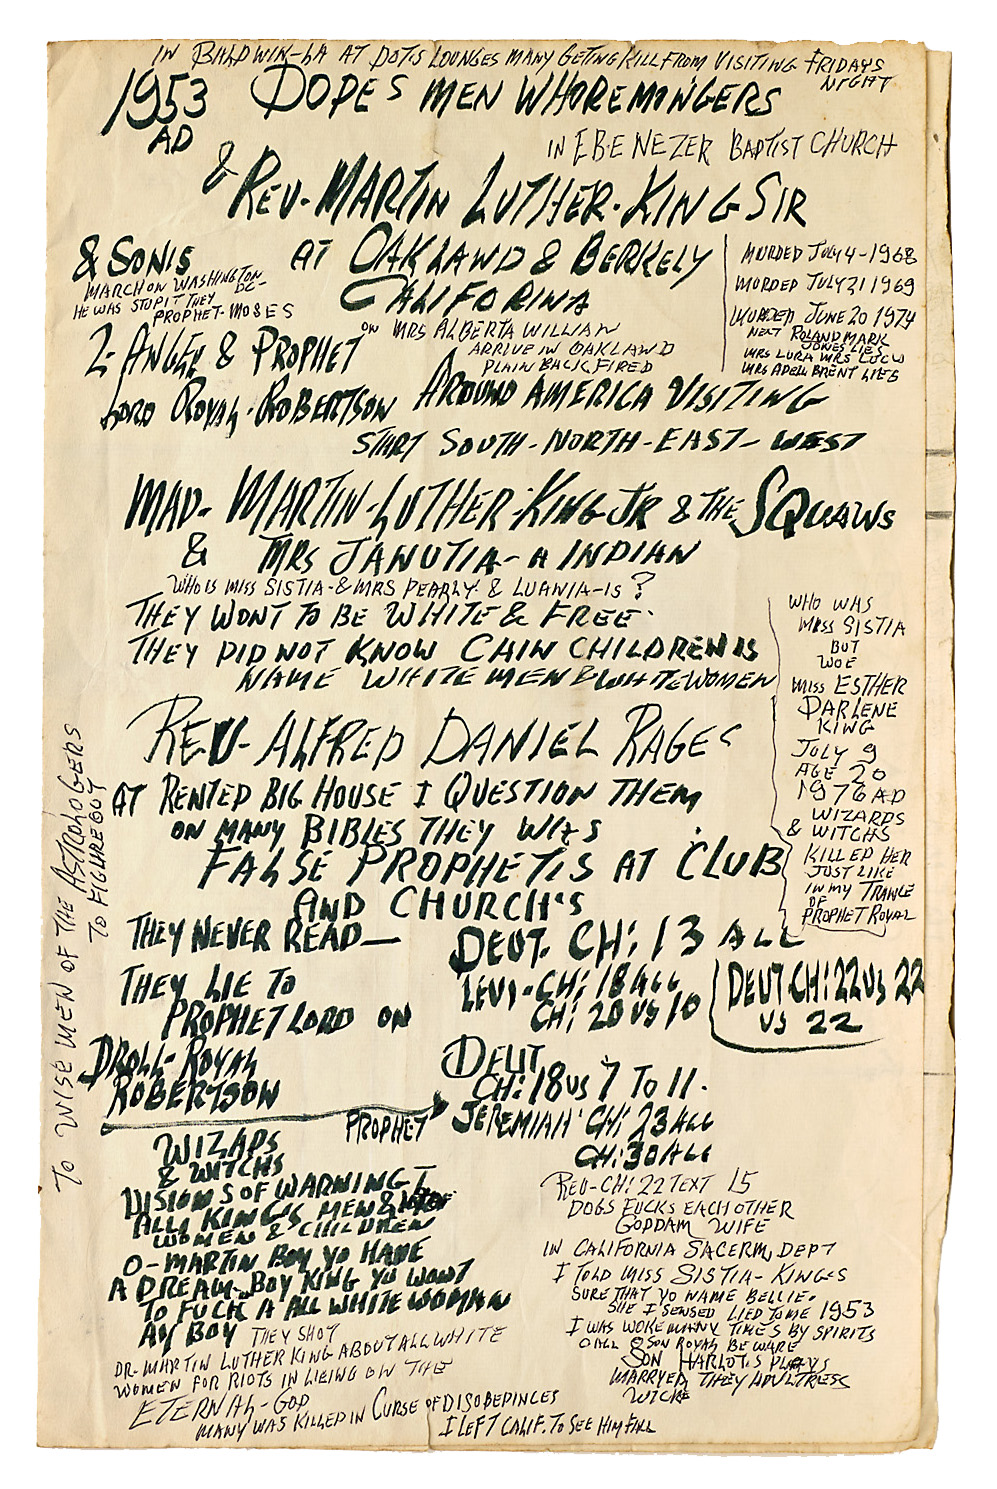 IN BALDWIN-LA AT DOTIS LOUNGES MANY GETING KILL FROM VISITING FRIDAYS
NIGHT
1953
AD
DOPES MEN WHOREMINGERS
IN EBENEZER BAPTIST CHURCH
& REV-MARTIN LUTHER-KING SIR
& SONIS
MARCH ON WASHINGTON
DC-
HE WAS STOPIT THEY
PROPHET-MOSES
AT OAKLAWD & BERKELY
CALIFORINA
MURDED JULY 4-1968
MORDED JULY 21 1969
MURDED JUNE 20 1974
NEXT ROLAND MARK
JONES LIES
MRS LURA MRS LUCW
MRS ADELL BRENT LIES
ON MRS ALBERTA WILLIAW
ARRIVE IN OAKLAWD
PLAIN BACK FIRED
2-ANGLE & PROPHET
LORD ROYAL-ROBERTSON
AROUND AMERICA VISITING
START SOUTH-NORTH-EAST-WEST
MAD-MARTIN-LUTHER-KING JR & THE SQUAWS
& MRS JANUTIA-A INDIAN
WHO IS MISS SISTIA-& MRS PEARLY & LUANIA-IS?
THEY WONT TO BE WHITE & FREE
THEY DID NOT KNOW CAIN CHILDREN IS
NAME WHITE MEN & WHITE WOMEN
WHO WAS
MISS SISTIA
BUT
WOE
MISS ESTHER
DARLENE
KING
JULY 9
AGE 20
1976 AD
WIZARDS
& WITCHS
KILLED HER
JUST LIKE
IN MY TRANCE
OF
PROPHET ROYAL
REV-ALFRED DANIEL RAGES
AT RENTED BIG HOUSE I QUESTION THEM
ON MANY BIBLES THEY WAS
FALSE PROPHETIS AT CLUB
AND CHURCH'S
THEY NEVER READ—
DEUT. CH: 13 ALL
LEVI-CH: 18 ALL
CH: 20 VS 10
DEUT CH: 22 VS 22
VS 22
THEY LIE TO
PROPHET LORD ON
DROLL-ROYAL
ROBERTSON
DEUT
CH: 18 VS 7 TO 11.
PROPHET JEREMIAH CH: 23 ALL
CH: 30 ALL
TO WISE MEN OF THE ASTROLOGERS
TO FIGURE OUT
WIZAPS
& WITCHS
VISIONS OF WARNING I
ALL KINGS MEN &
WOMEN & CHILDREN
O-MARTIN BOY YO HAVE
A DREAM-BOY KING YO WONT
TO FUCK A ALL WHITE WOMAN
AY BOY THEY SHOT
DR. MARTIN LUTHER KING ABOUT ALL WHITE
WOMEN FOR RIOTS IN LIEING ON THE
ETERNAL-GOD
MANY WAS KILLED IN CURSE OF DISOBEDINCES
I LEFT CALIF. TO SEE HIM FALL
REV-CH: 22 TEXT 15
DOGS FUCKS EACH OTHER
GODDAM WIFE
IN CALIFORNIA SACERM, DEPT
I TOLD MISS SISTIA-KINGES
SURE THAT YO NAME BELLIE.
SHE I SENSED LIED TO ME 1953
I WAS WOKE MANY TIMES BY SPIRITS
O ALL & SON ROYAL BEWARE
SON HARLOTIS PLAYS
MARRYED, THEY ADULTRESS
WICKE